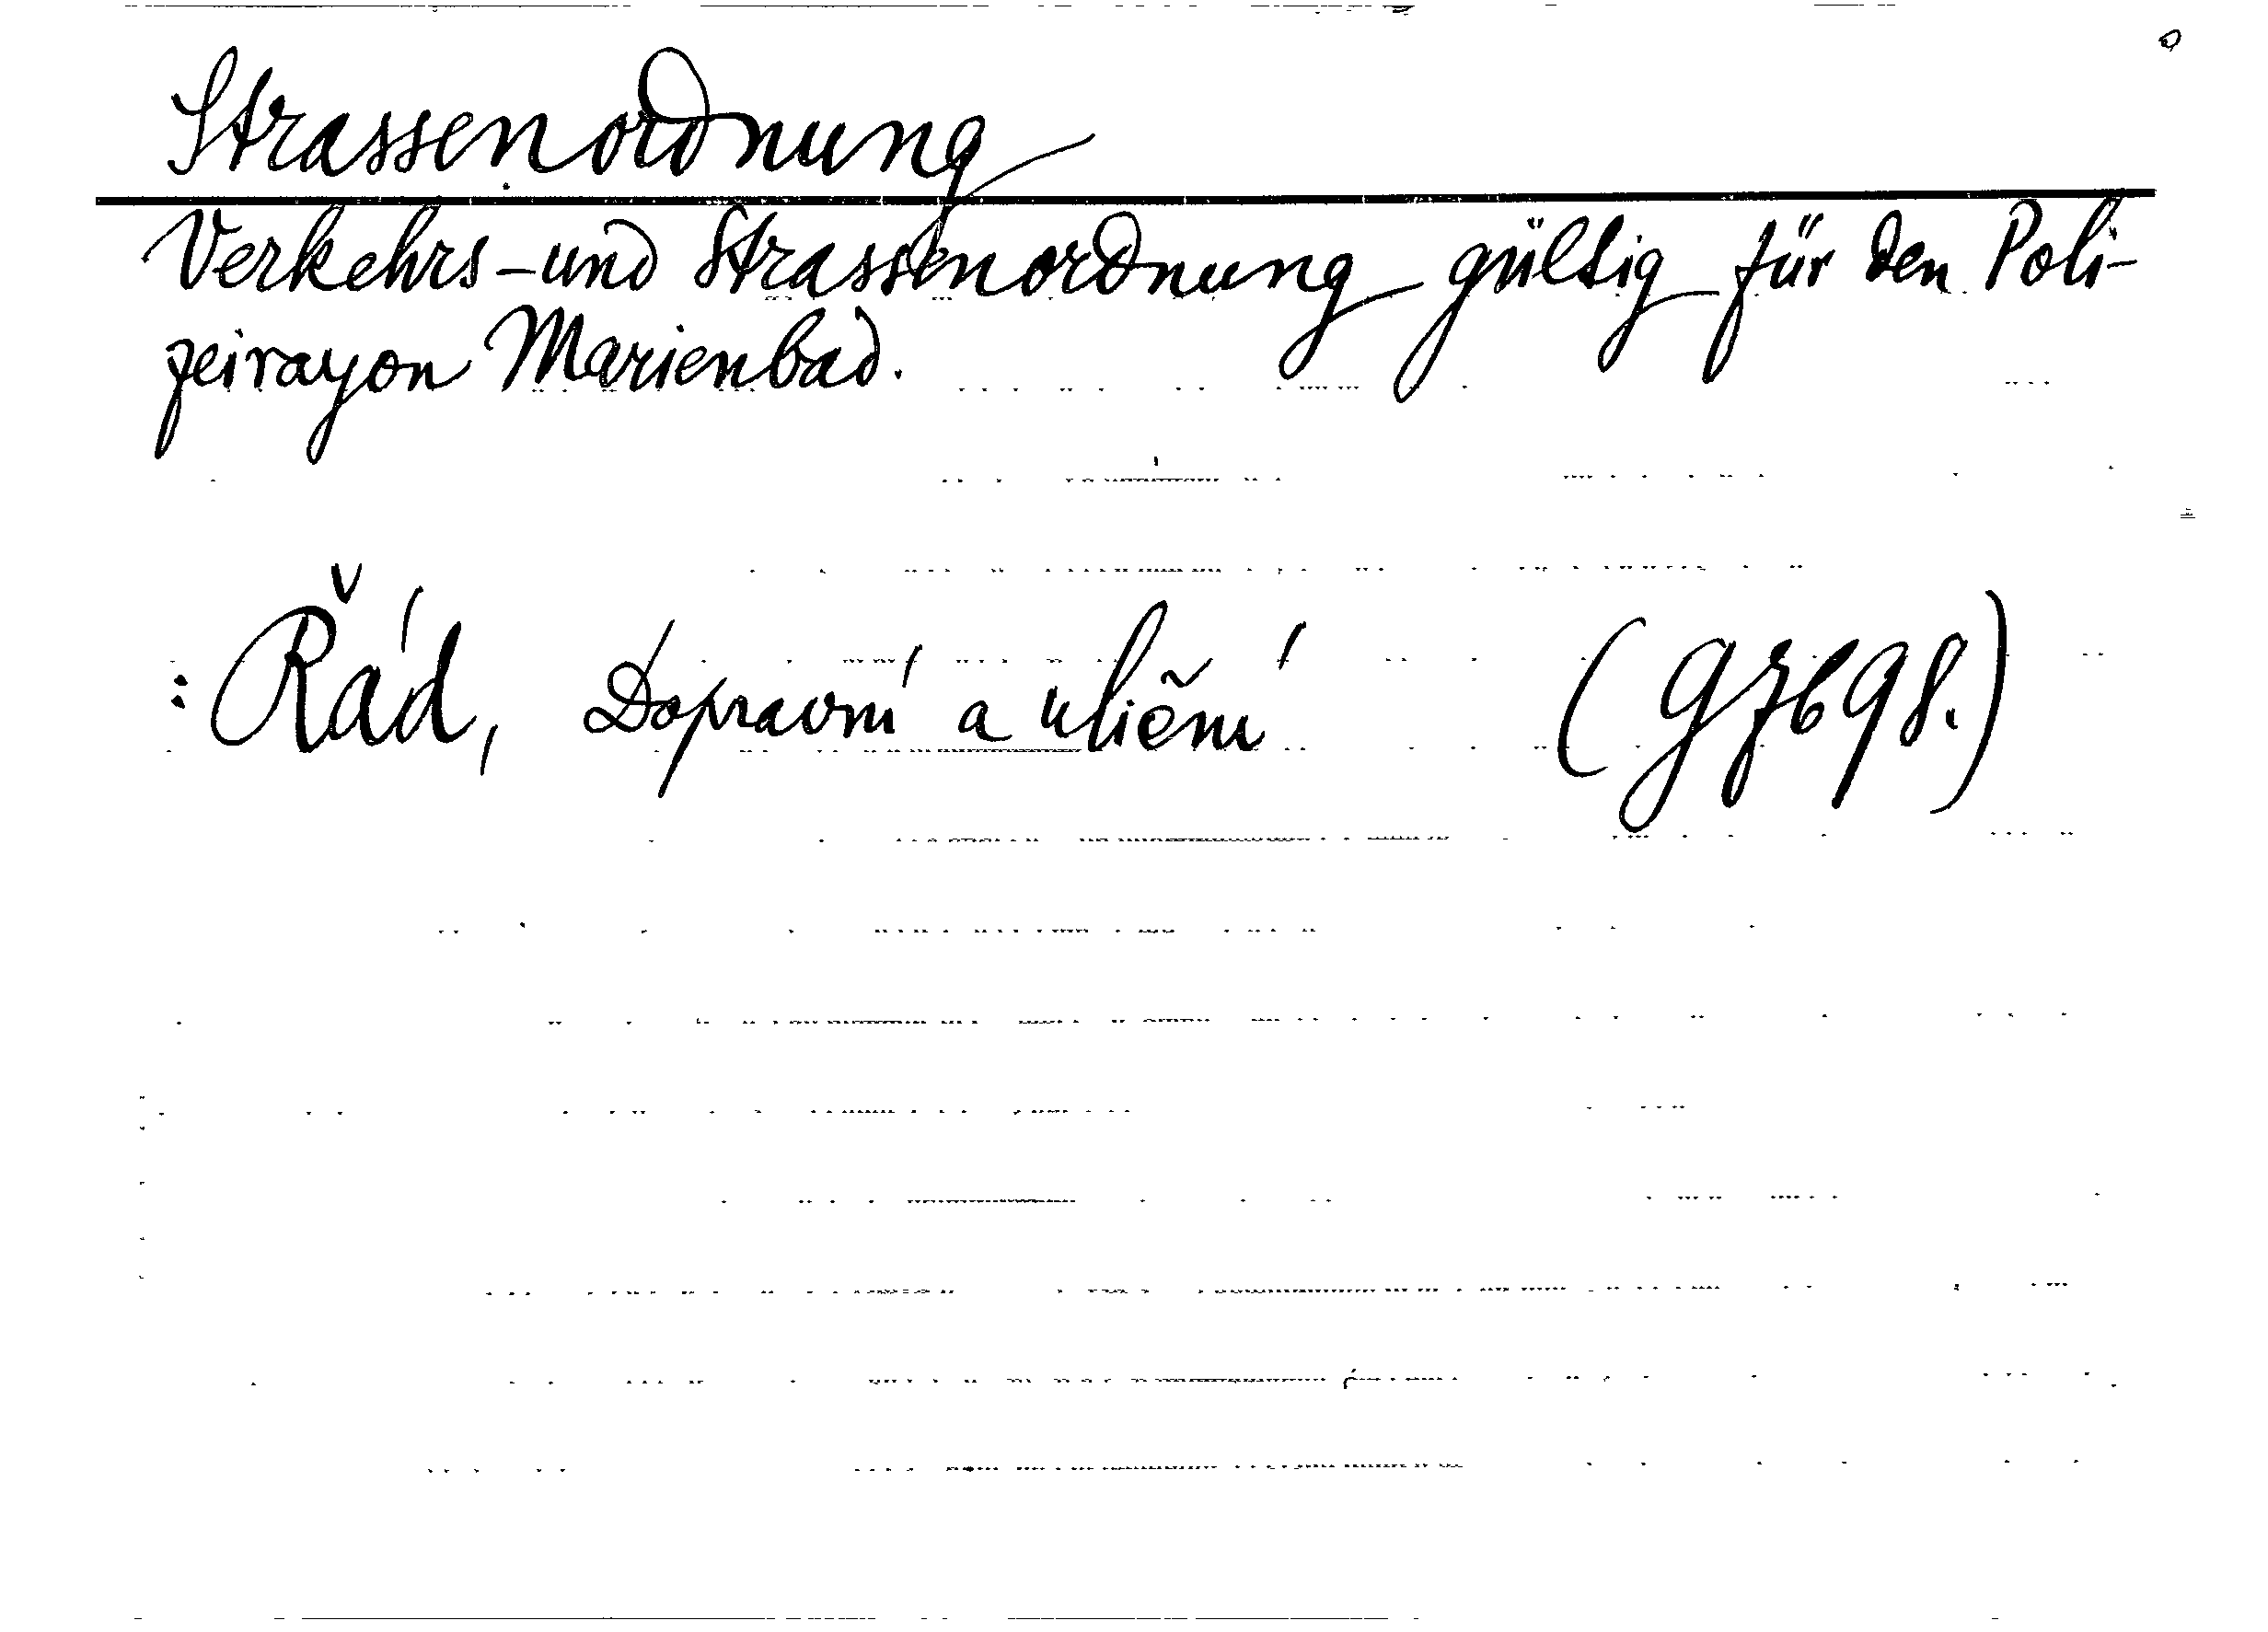 Strassenordnung
Verkehrs-und Strassenordnung gültig für den Poli-
zeirayon Marienbad.
: Řád, Dopravní a uliční (g 7698.)